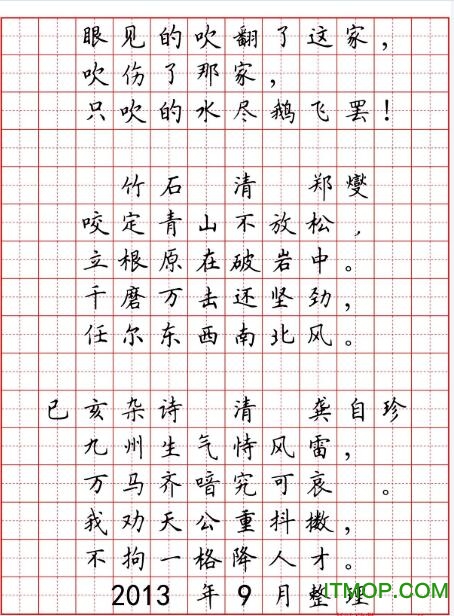 眼见的吹翻了这家，
吹伤了那家，
只吹的水尽鹅飞罢！
竹石 清 郑燮
咬定青山不放松，
立根原在破岩中。
千磨万击还坚劲，
任尔东西南北风。
已亥杂诗 清 龚自珍
九州生气恃风雷，
万马齐喑究可哀。
我劝天公重抖擞，
不拘一格降人才。
2013 年 9 月整理
ITMOP.COM